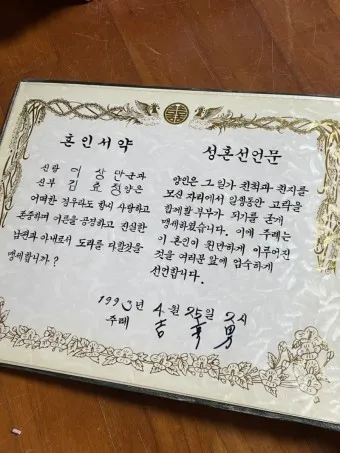 혼인서약
신랑 이상만군과
신부 김효정양은
어떠한 경우라도 항시 사랑하고
존중하며 어른을 공경하고 진실한
남편과 아내로서 도리를 다할것을
맹세합니까?
성혼선언문
양인은 그 일가 친척과 친지를
모신 자리에서 일생동안 고락을
함께할 부부가 되기를 굳게
맹세하였습니다. 이에 주례는
이 혼인이 원만하게 이루어진
것을 여러분 앞에 엄숙하게
선언합니다.
1993년 4월 25일 2시
주례 吉 男